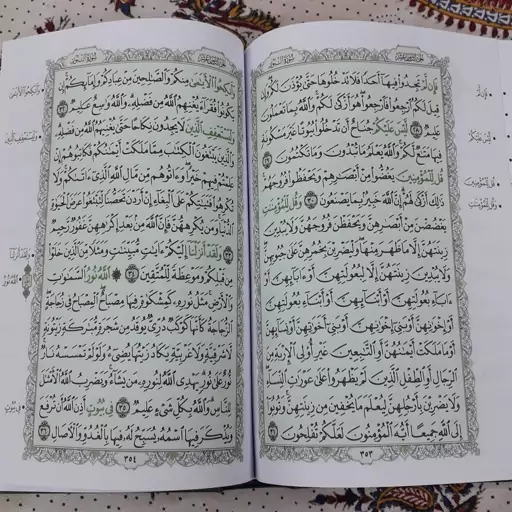 الجزء الثامن عشر
سورة النور
فَإِن لَّمْ تَجِدُوا۟ فِيهَآ أَحَدًا فَلَا تَدْخُلُوهَا حَتَّىٰ يُؤْذَنَ لَكُمْ ۖ وَإِن
قِيلَ لَكُمُ ٱرْجِعُوا۟ فَٱرْجِعُوا۟ ۖ هُوَ أَزْكَىٰ لَكُمْ ۚ وَٱللَّهُ بِمَا تَعْمَلُونَ
عَلِيمٌ ٢٨ لَّيْسَ عَلَيْكُمْ جُنَاحٌ أَن تَدْخُلُوا۟ بُيُوتًا غَيْرَ مَسْكُونَةٍ
فِيهَا مَتَـٰعٌ لَّكُمْ ۚ وَٱللَّهُ يَعْلَمُ مَا تُبْدُونَ وَمَا تَكْتُمُونَ ٢٩
قُل لِّلْمُؤْمِنِينَ يَغُضُّوا۟ مِنْ أَبْصَـٰرِهِمْ وَيَحْفَظُوا۟ فُرُوجَهُمْ ۚ
ذَٰلِكَ أَزْكَىٰ لَهُمْ ۗ إِنَّ ٱللَّهَ خَبِيرٌۢ بِمَا يَصْنَعُونَ ٣٠ وَقُل لِّلْمُؤْمِنَـٰتِ
يَغْضُضْنَ مِنْ أَبْصَـٰرِهِنَّ وَيَحْفَظْنَ فُرُوجَهُنَّ وَلَا يُبْدِينَ
زِينَتَهُنَّ إِلَّا مَا ظَهَرَ مِنْهَا ۖ وَلْيَضْرِبْنَ بِخُمُرِهِنَّ عَلَىٰ جُيُوبِهِنَّ ۖ
وَلَا يُبْدِينَ زِينَتَهُنَّ إِلَّا لِبُعُولَتِهِنَّ أَوْ ءَابَآئِهِنَّ أَوْ
ءَابَآءِ بُعُولَتِهِنَّ أَوْ أَبْنَآئِهِنَّ أَوْ أَبْنَآءِ بُعُولَتِهِنَّ
أَوْ إِخْوَٰنِهِنَّ أَوْ بَنِىٓ إِخْوَٰنِهِنَّ أَوْ بَنِىٓ أَخَوَٰتِهِنَّ أَوْ نِسَآئِهِنَّ
أَوْ مَا مَلَكَتْ أَيْمَـٰنُهُنَّ أَوِ ٱلتَّـٰبِعِينَ غَيْرِ أُو۟لِى ٱلْإِرْبَةِ مِنَ
ٱلرِّجَالِ أَوِ ٱلطِّفْلِ ٱلَّذِينَ لَمْ يَظْهَرُوا۟ عَلَىٰ عَوْرَٰتِ ٱلنِّسَآءِ ۖ
وَلَا يَضْرِبْنَ بِأَرْجُلِهِنَّ لِيُعْلَمَ مَا يُخْفِينَ مِن زِينَتِهِنَّ ۚ وَتُوبُوٓا۟
إِلَى ٱللَّهِ جَمِيعًا أَيُّهَ ٱلْمُؤْمِنُونَ لَعَلَّكُمْ تُفْلِحُونَ ٣١
٣٥٣
لَيْسَ عَلَيْكُمْ
قُل لِّلْمُؤْمِنِينَ
وَقُل لِّلْمُؤْمِنَـٰتِ
الجزء الثامن عشر
سورة النور
وَأَنكِحُوا۟ ٱلْأَيَـٰمَىٰ مِنكُمْ وَٱلصَّـٰلِحِينَ مِنْ عِبَادِكُمْ وَإِمَآئِكُمْ ۚ إِن
يَكُونُوا۟ فُقَرَآءَ يُغْنِهِمُ ٱللَّهُ مِن فَضْلِهِۦ ۗ وَٱللَّهُ وَٰسِعٌ عَلِيمٌ ٣٢
وَلْيَسْتَعْفِفِ ٱلَّذِينَ لَا يَجِدُونَ نِكَاحًا حَتَّىٰ يُغْنِيَهُمُ ٱللَّهُ مِن فَضْلِهِۦ ۗ
وَٱلَّذِينَ يَبْتَغُونَ ٱلْكِتَـٰبَ مِمَّا مَلَكَتْ أَيْمَـٰنُكُمْ فَكَاتِبُوهُمْ إِنْ
عَلِمْتُمْ فِيهِمْ خَيْرًا ۖ وَءَاتُوهُم مِّن مَّالِ ٱللَّهِ ٱلَّذِىٓ ءَاتَىٰكُمْ ۚ وَلَا
تُكْرِهُوا۟ فَتَيَـٰتِكُمْ عَلَى ٱلْبِغَآءِ إِنْ أَرَدْنَ تَحَصُّنًا لِّتَبْتَغُوا۟ عَرَضَ ٱلْحَيَوٰةِ
ٱلدُّنْيَا ۚ وَمَن يُكْرِههُّنَّ فَإِنَّ ٱللَّهَ مِنۢ بَعْدِ إِكْرَٰهِهِنَّ غَفُورٌ رَّحِيمٌ
٣٣ وَلَقَدْ أَنزَلْنَآ إِلَيْكُمْ ءَايَـٰتٍ مُّبَيِّنَـٰتٍ وَمَثَلًا مِّنَ ٱلَّذِينَ خَلَوْا۟
مِن قَبْلِكُمْ وَمَوْعِظَةً لِّلْمُتَّقِينَ ٣٤ ۞ ٱللَّهُ نُورُ ٱلسَّمَـٰوَٰتِ
وَٱلْأَرْضِ ۚ مَثَلُ نُورِهِۦ كَمِشْكَوٰةٍ فِيهَا مِصْبَاحٌ ۖ ٱلْمِصْبَاحُ فِى زُجَاجَةٍ ۖ
ٱلزُّجَاجَةُ كَأَنَّهَا كَوْكَبٌ دُرِّىٌّ يُوقَدُ مِن شَجَرَةٍ مُّبَـٰرَكَةٍ زَيْتُونَةٍ
لَّا شَرْقِيَّةٍ وَلَا غَرْبِيَّةٍ يَكَادُ زَيْتُهَا يُضِىٓءُ وَلَوْ لَمْ تَمْسَسْهُ نَارٌ ۚ
نُّورٌ عَلَىٰ نُورٍ ۗ يَهْدِى ٱللَّهُ لِنُورِهِۦ مَن يَشَآءُ ۚ وَيَضْرِبُ ٱللَّهُ ٱلْأَمْثَـٰلَ
لِلنَّاسِ ۗ وَٱللَّهُ بِكُلِّ شَىْءٍ عَلِيمٌ ٣٥ فِى بُيُوتٍ أَذِنَ ٱللَّهُ أَن تُرْفَعَ
وَيُذْكَرَ فِيهَا ٱسْمُهُۥ يُسَبِّحُ لَهُۥ فِيهَا بِٱلْغُدُوِّ وَٱلْـَٔاصَالِ ٣٦
٣٥٤
وَأَنكِحُوا۟ ٱلْأَيَـٰمَىٰ
وَلْيَسْتَعْفِفِ ٱلَّذِينَ
وَلَقَدْ أَنزَلْنَآ
ٱللَّهُ نُورُ
فِى بُيُوتٍ